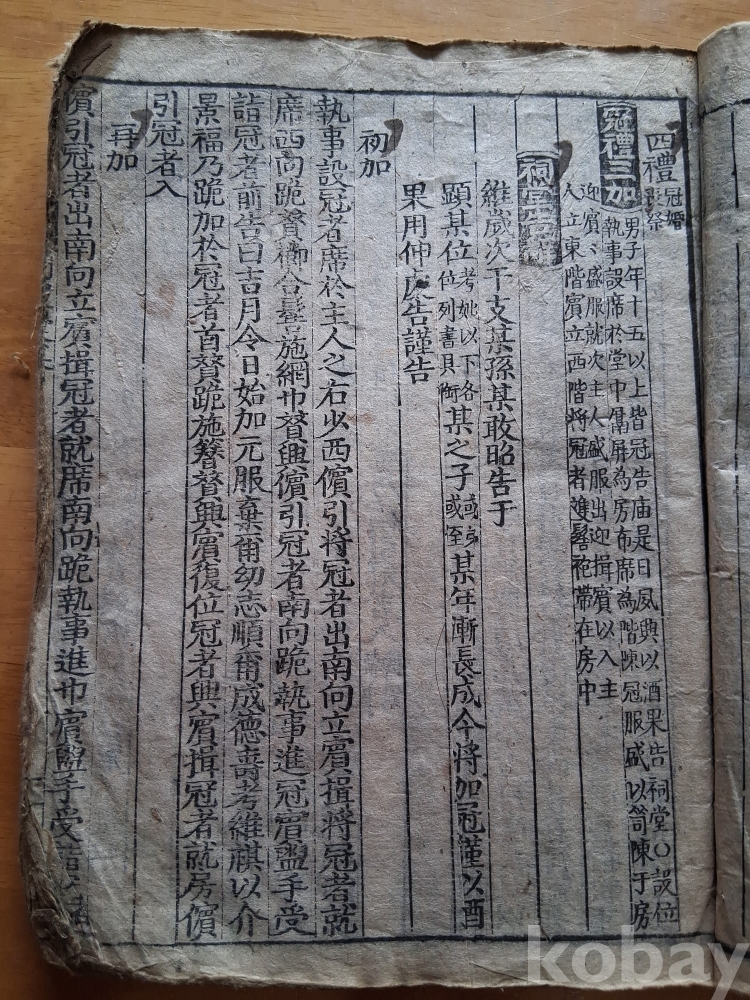 四禮 冠婚
喪祭
冠禮三加
男子年十五以上皆冠告庙是日夙興以酒果告祠堂○設位
執事設席於堂中用屏為房布席為階陳冠服盛以笥陳于房
迎賓賓盛服就次主人盛服出迎揖賓以入主
人立東階賓立西階將冠者雙髻袍帶在房中
維歲次干支某孫某敢昭告于
顯某位 考妣以下各
位列書具銜 某之子 或弟
或侄 某年漸長成今將加冠謹以酒
果用伸虔告謹告
初加
執事設冠者席於主人之右少西儐引將冠者出南向立賓揖將冠者就
席西向跪贊櫛合髻施網巾贊興儐引冠者南向跪執事進冠賓盥手受
詣冠者前告曰吉月令日始加元服棄爾幼志順爾成德壽考維祺以介
景福乃跪加於冠者首贊跪施簪贊興賓復位冠者興賓揖冠者就房儐
引冠者入
再加
儐引冠者出南向立賓揖冠者就席南向跪執事進巾賓盥手受詣
kobay